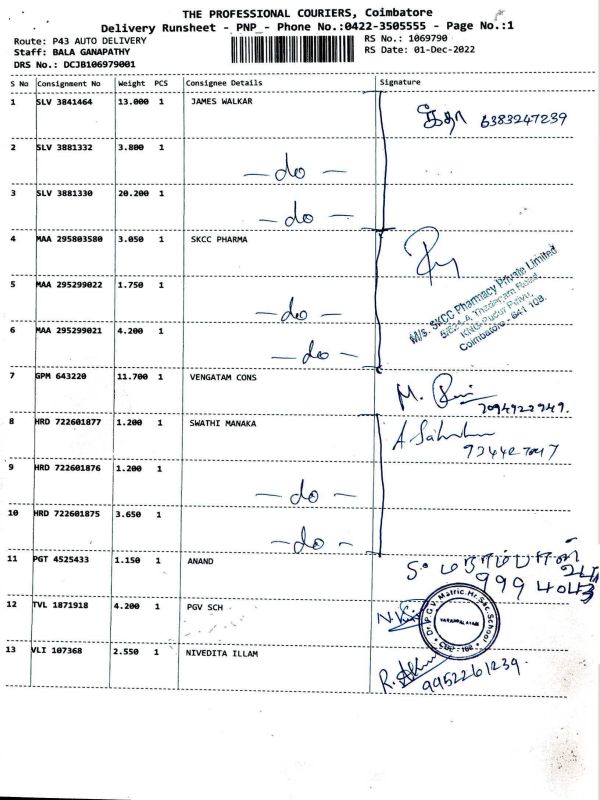 THE PROFESSIONAL COURIERS, Coimbatore
Delivery Runsheet - PNP - Phone No.:0422-3505555 - Page No.:1
Route: P43 AUTO DELIVERY
RS No.: 1069790
Staff: BALA GANAPATHY
RS Date: 01-Dec-2022
DRS No.: DCJB106979001
S No Consignment No Weight PCS Consignee Details Signature
1 SLV 3841464 13.000 1 JAMES WALKAR
6383247239
2 SLV 3881332 3.800 1
— do —
3 SLV 3881330 20.200 1
— do —
4 MAA 295803580 3.050 1 SKCC PHARMA
M/s. SKCC Pharmacy Private Limited
Coimbatore - 641 108.
5 MAA 295299022 1.750 1
— do —
6 MAA 295299021 4.200 1
— do —
7 GPM 643220 11.700 1 VENGATAM CONS
M.
8 HRD 722601877 1.200 1 SWATHI MANAKA
9 HRD 722601876 1.200 1
— do —
10 HRD 722601875 3.650 1
— do —
11 PGT 4525433 1.150 1 ANAND
12 TVL 1871918 4.200 1 PGV SCH
Dr. P.G.V. Matric. Hr. Sec. School
13 VLI 107368 2.550 1 NIVEDITA ILLAM
9952261239.